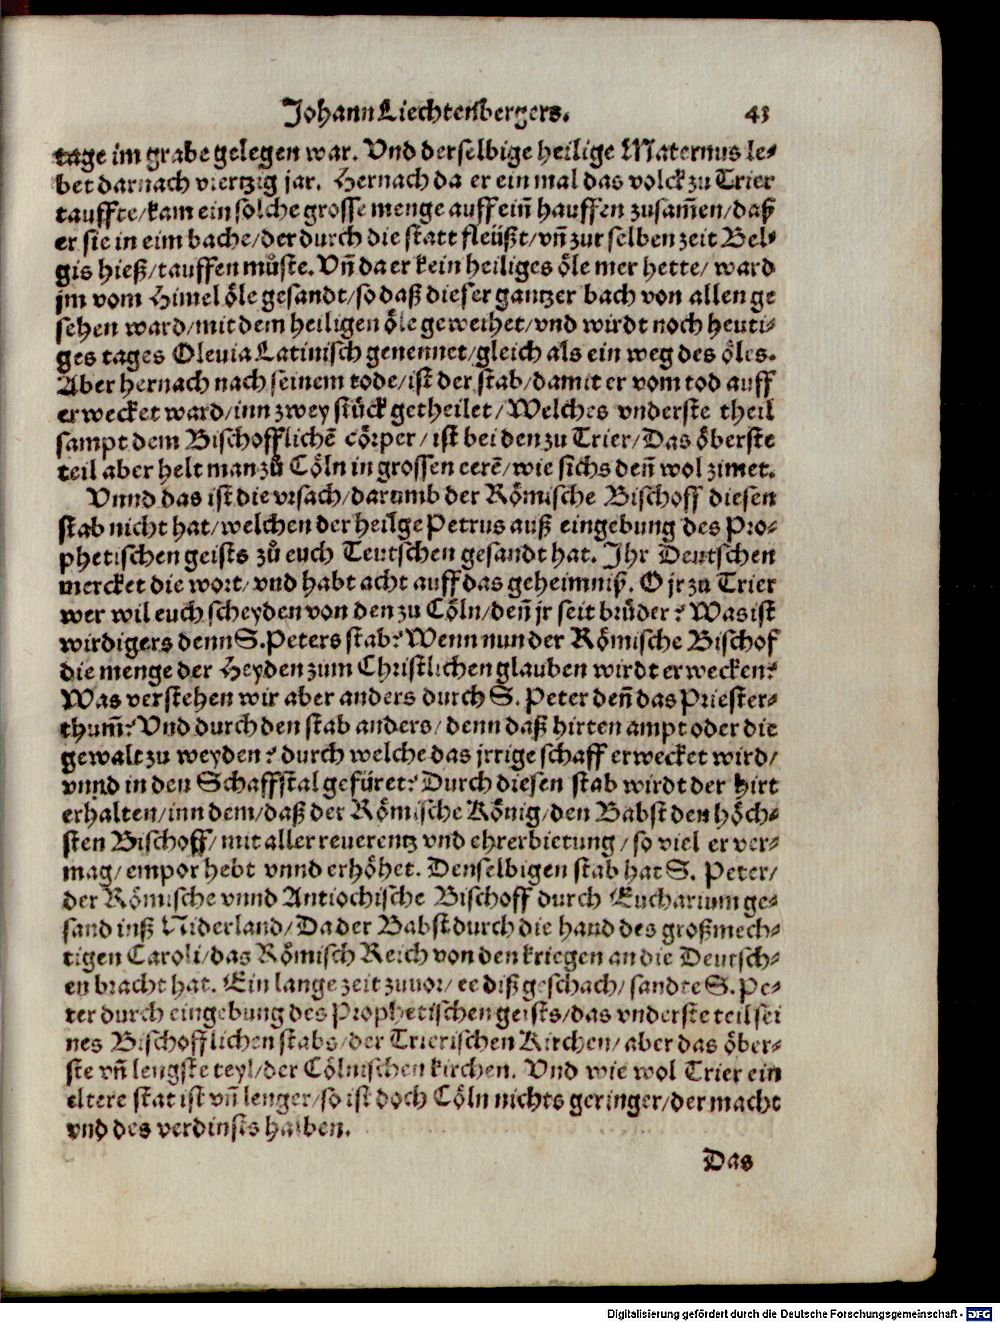 Johann Liechtenbergers. 43
tage im grabe gelegen war. Vnd derselbige heilige Maternus le-
bet darnach viertzig jar. Hernach da er ein mal das volck zu Trier
tauffte/kam ein solche grosse menge auff eiñ hauffen zusam̃en/daß
er sie in eim bache/der durch die statt fleüßt/vñ zur selben zeit Bel-
gis hieß/tauffen můste. Vñ da er kein heiliges öle mer hette/ ward
jm vom Himel öle gesandt/so daß dieser gantzer bach von allen ge
sehen ward/mit dem heiligen öle geweihet/vnd wirdt noch heuti-
ges tages Oleuia Latinisch genennet/gleich als ein weg des öles.
Aber hernach nach seinem tode/ist der stab/damit er vom tod auff
erwecket ward/inn zwey stück getheilet/Welches vnderste theil
sampt dem Bischofflichẽ cörper/ ist bei den zu Trier/Das öberste
teil aber helt man zů Cöln in grossen eerẽ/wie sichs deñ wol zimet.
Vnnd das ist die vrsach/darumb der Römische Bischoff diesen
stab nicht hat/welchen der heilge Petrus auß eingebung des Pro-
phetischen geists zů euch Teutschen gesandt hat. Jhr Deutschen
mercket die wort/vnd habt acht auff das geheimniß. O jr zu Trier
wer wil euch scheyden von den zu Cöln/deñ jr seit brůder? Was ist
wirdigers denn S. Peters stab? Wenn nun der Römische Bischof
die menge der Heyden zum Christlichen glauben wirdt erwecken?
Was verstehen wir aber anders durch S. Peter deñ das Priester-
thum̃? Vnd durch den stab anders/denn daß hirten ampt oder die
gewalt zu weyden? durch welche das jrrige schaff erwecket wird/
vnnd in den Schaffstal gefüret? Durch diesen stab wirdt der hirt
erhalten/inn dem/daß der Römische König/den Babst den höch-
sten Bischoff/mit aller reuerentz vnd ehrerbietung/so viel er ver-
mag/empor hebt vnnd erhöhet. Denselbigen stab hat S. Peter/
der Römische vnnd Antiochische Bischoff durch Eucharium ge-
sand inß Niderland/Da der Babst durch die hand des großmech-
tigen Caroli/das Römisch Reich von den kriegen an die Deutsch-
en bracht hat. Ein lange zeit zuuor/ ee diß geschach/ sandte S. Pe-
ter durch eingebung des Prophetischen geists/das vnderste teil sei
nes Bischofflichen stabs/der Trierischen Kirchen/ aber das öber-
ste vñ lengste teyl/der Cölnischen kirchen. Vnd wie wol Trier ein
eltere stat ist vñ lenger/so ist doch Cöln nichts geringer/der macht
vnd des verdinsts halben.
Das
Digitalisierung gefördert durch die Deutsche Forschungsgemeinschaft - DFG